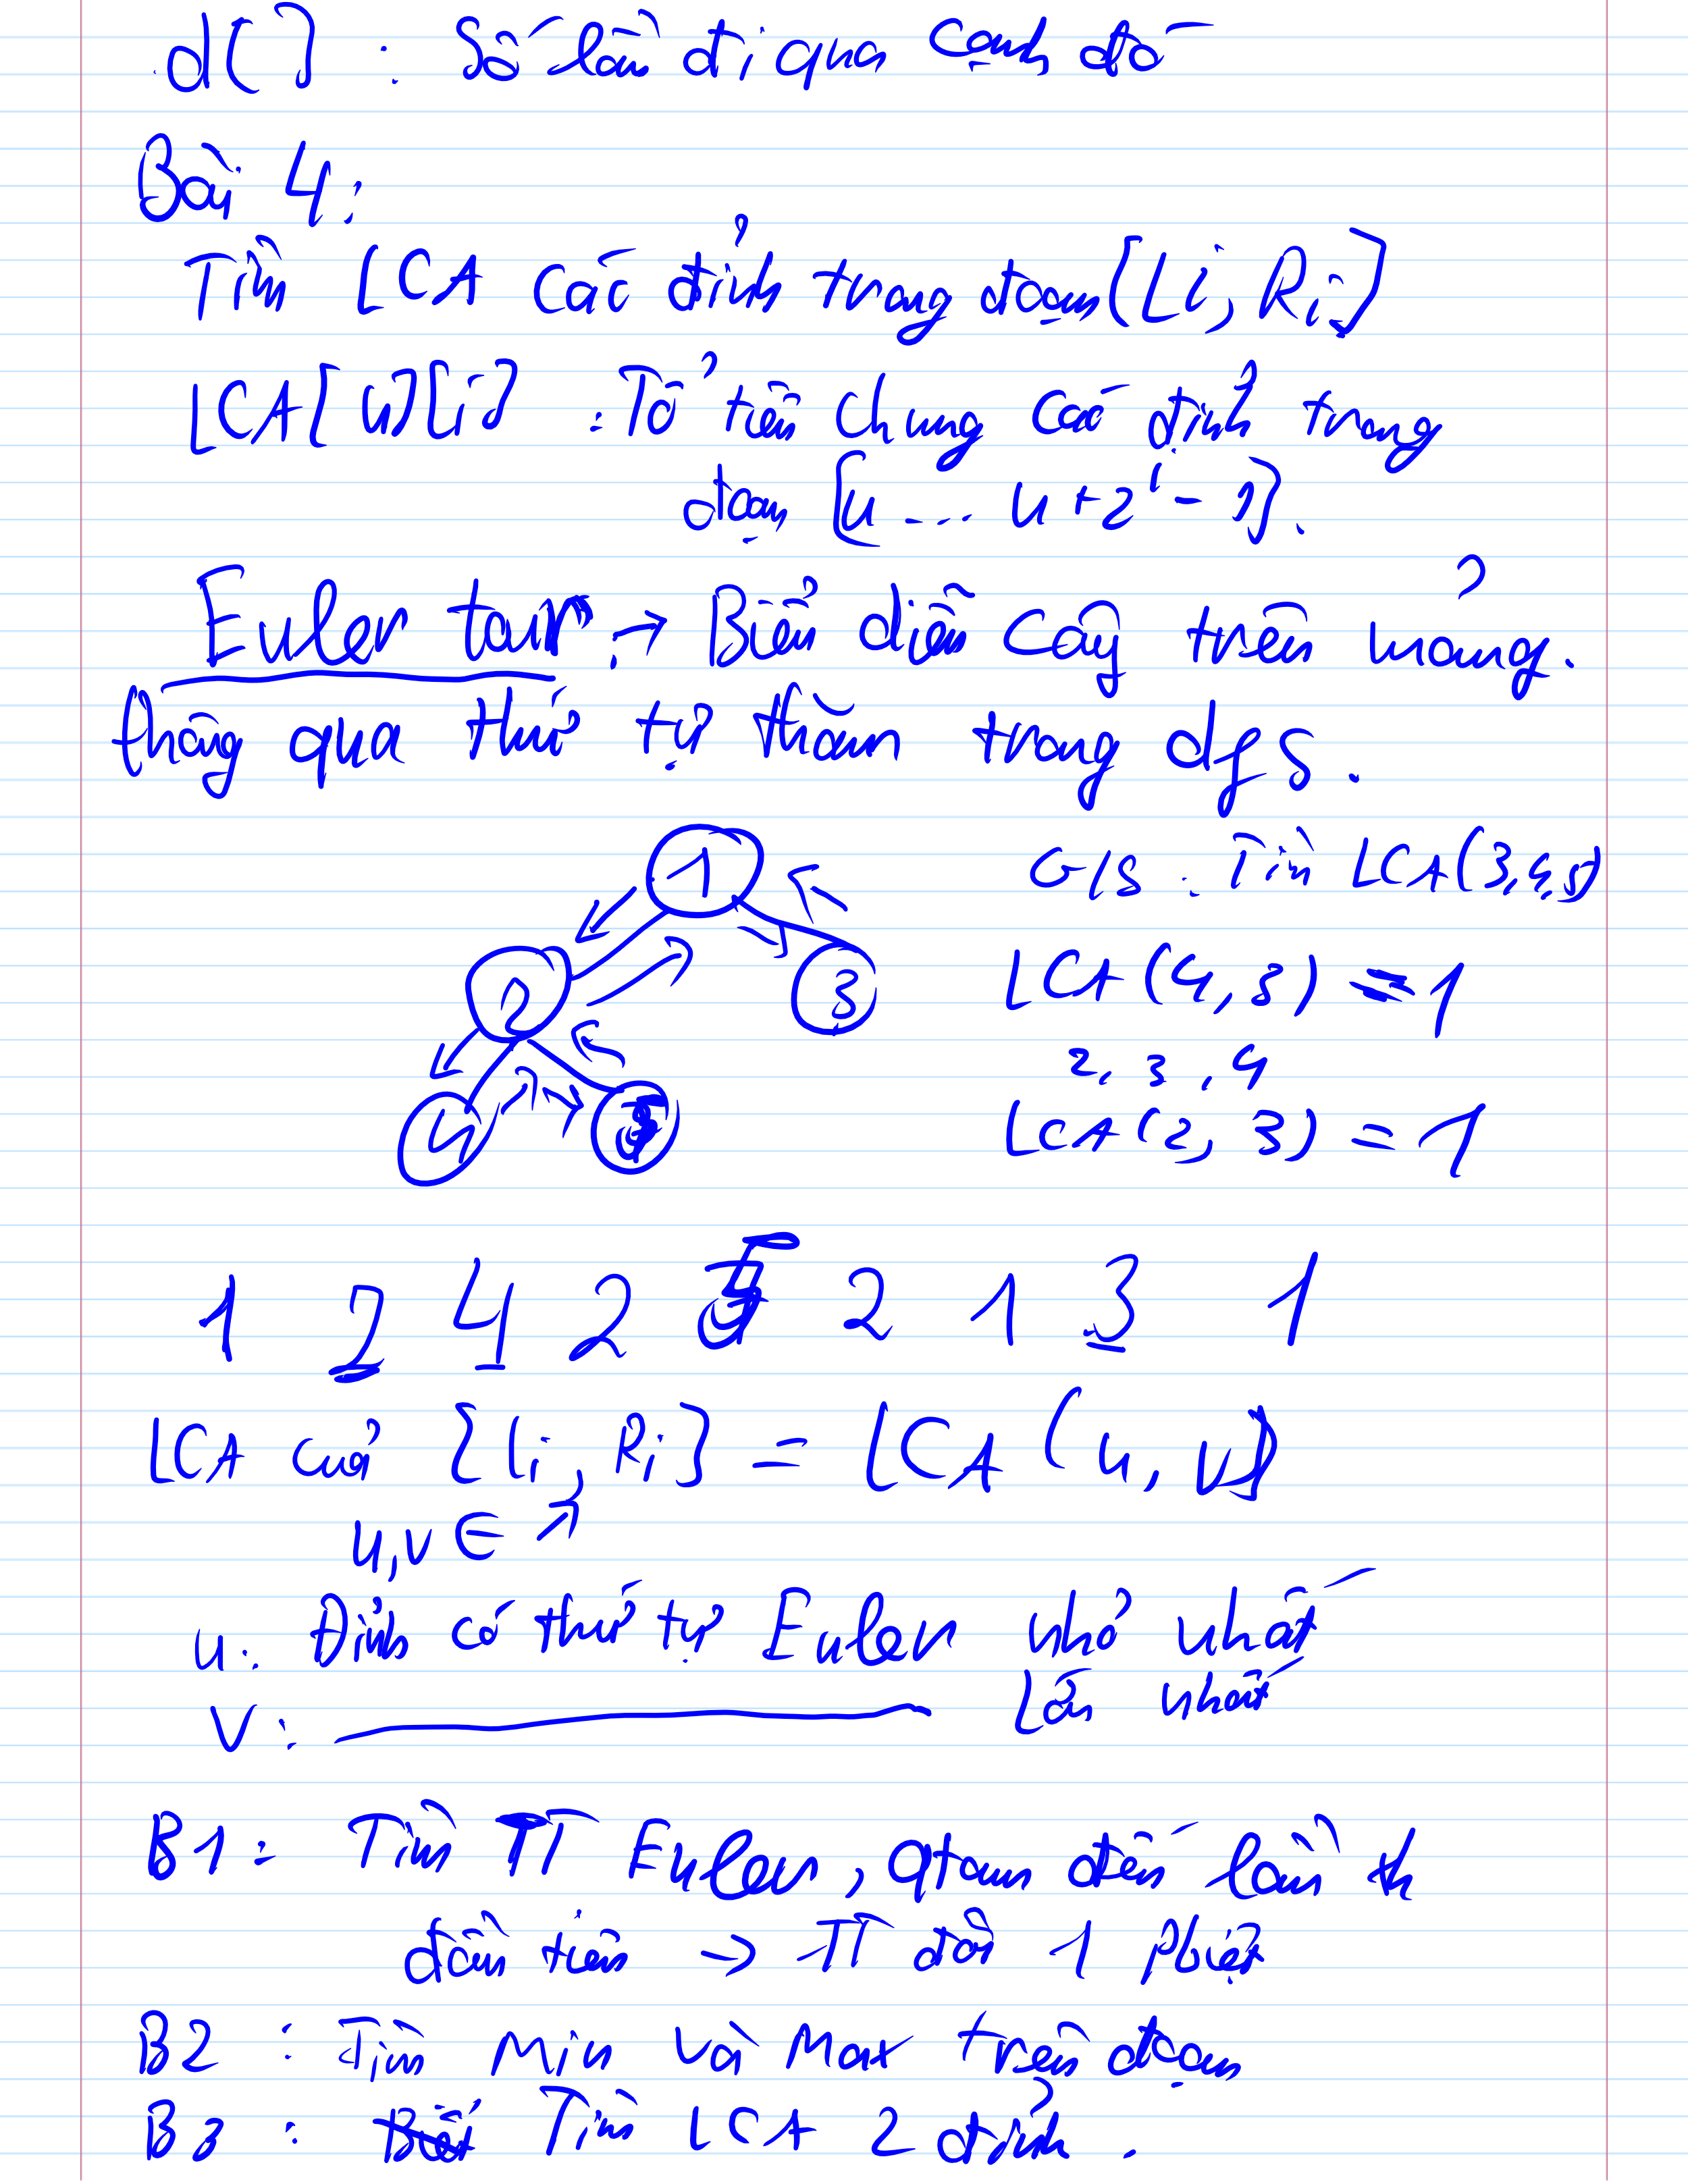 d[] : Số lần đi qua cạnh đó
Bài 4:
Tìm LCA các đỉnh trong đoạn [Li, Ri]
LCA[u][i] : Tổ tiên chung các đỉnh trong
đoạn [u ... u + 2^i - 1].
Euler tour: → Biểu diễn cây trên mảng.
thông qua thứ tự thăm trong dfs.
1
G/s : Tìm LCA(3,4,5)
2 3
LCA(4, 3) = 1
2, 3, 4
4 5
LCA(2, 3) = 1
1 2 4 2 5 2 1 3 1
LCA của [Li, Ri] = LCA(u, v)
u,v ∈ ↗
u: Đỉnh có thứ tự Euler nhỏ nhất
v: Lớn nhất
B1: Tìm TT Euler, qtam đến lần th
đầu tiên → TT đôi 1 phiệt
B2 : Tìm Min và Max trên đoạn
B3 : Tìm LCA 2 đỉnh.